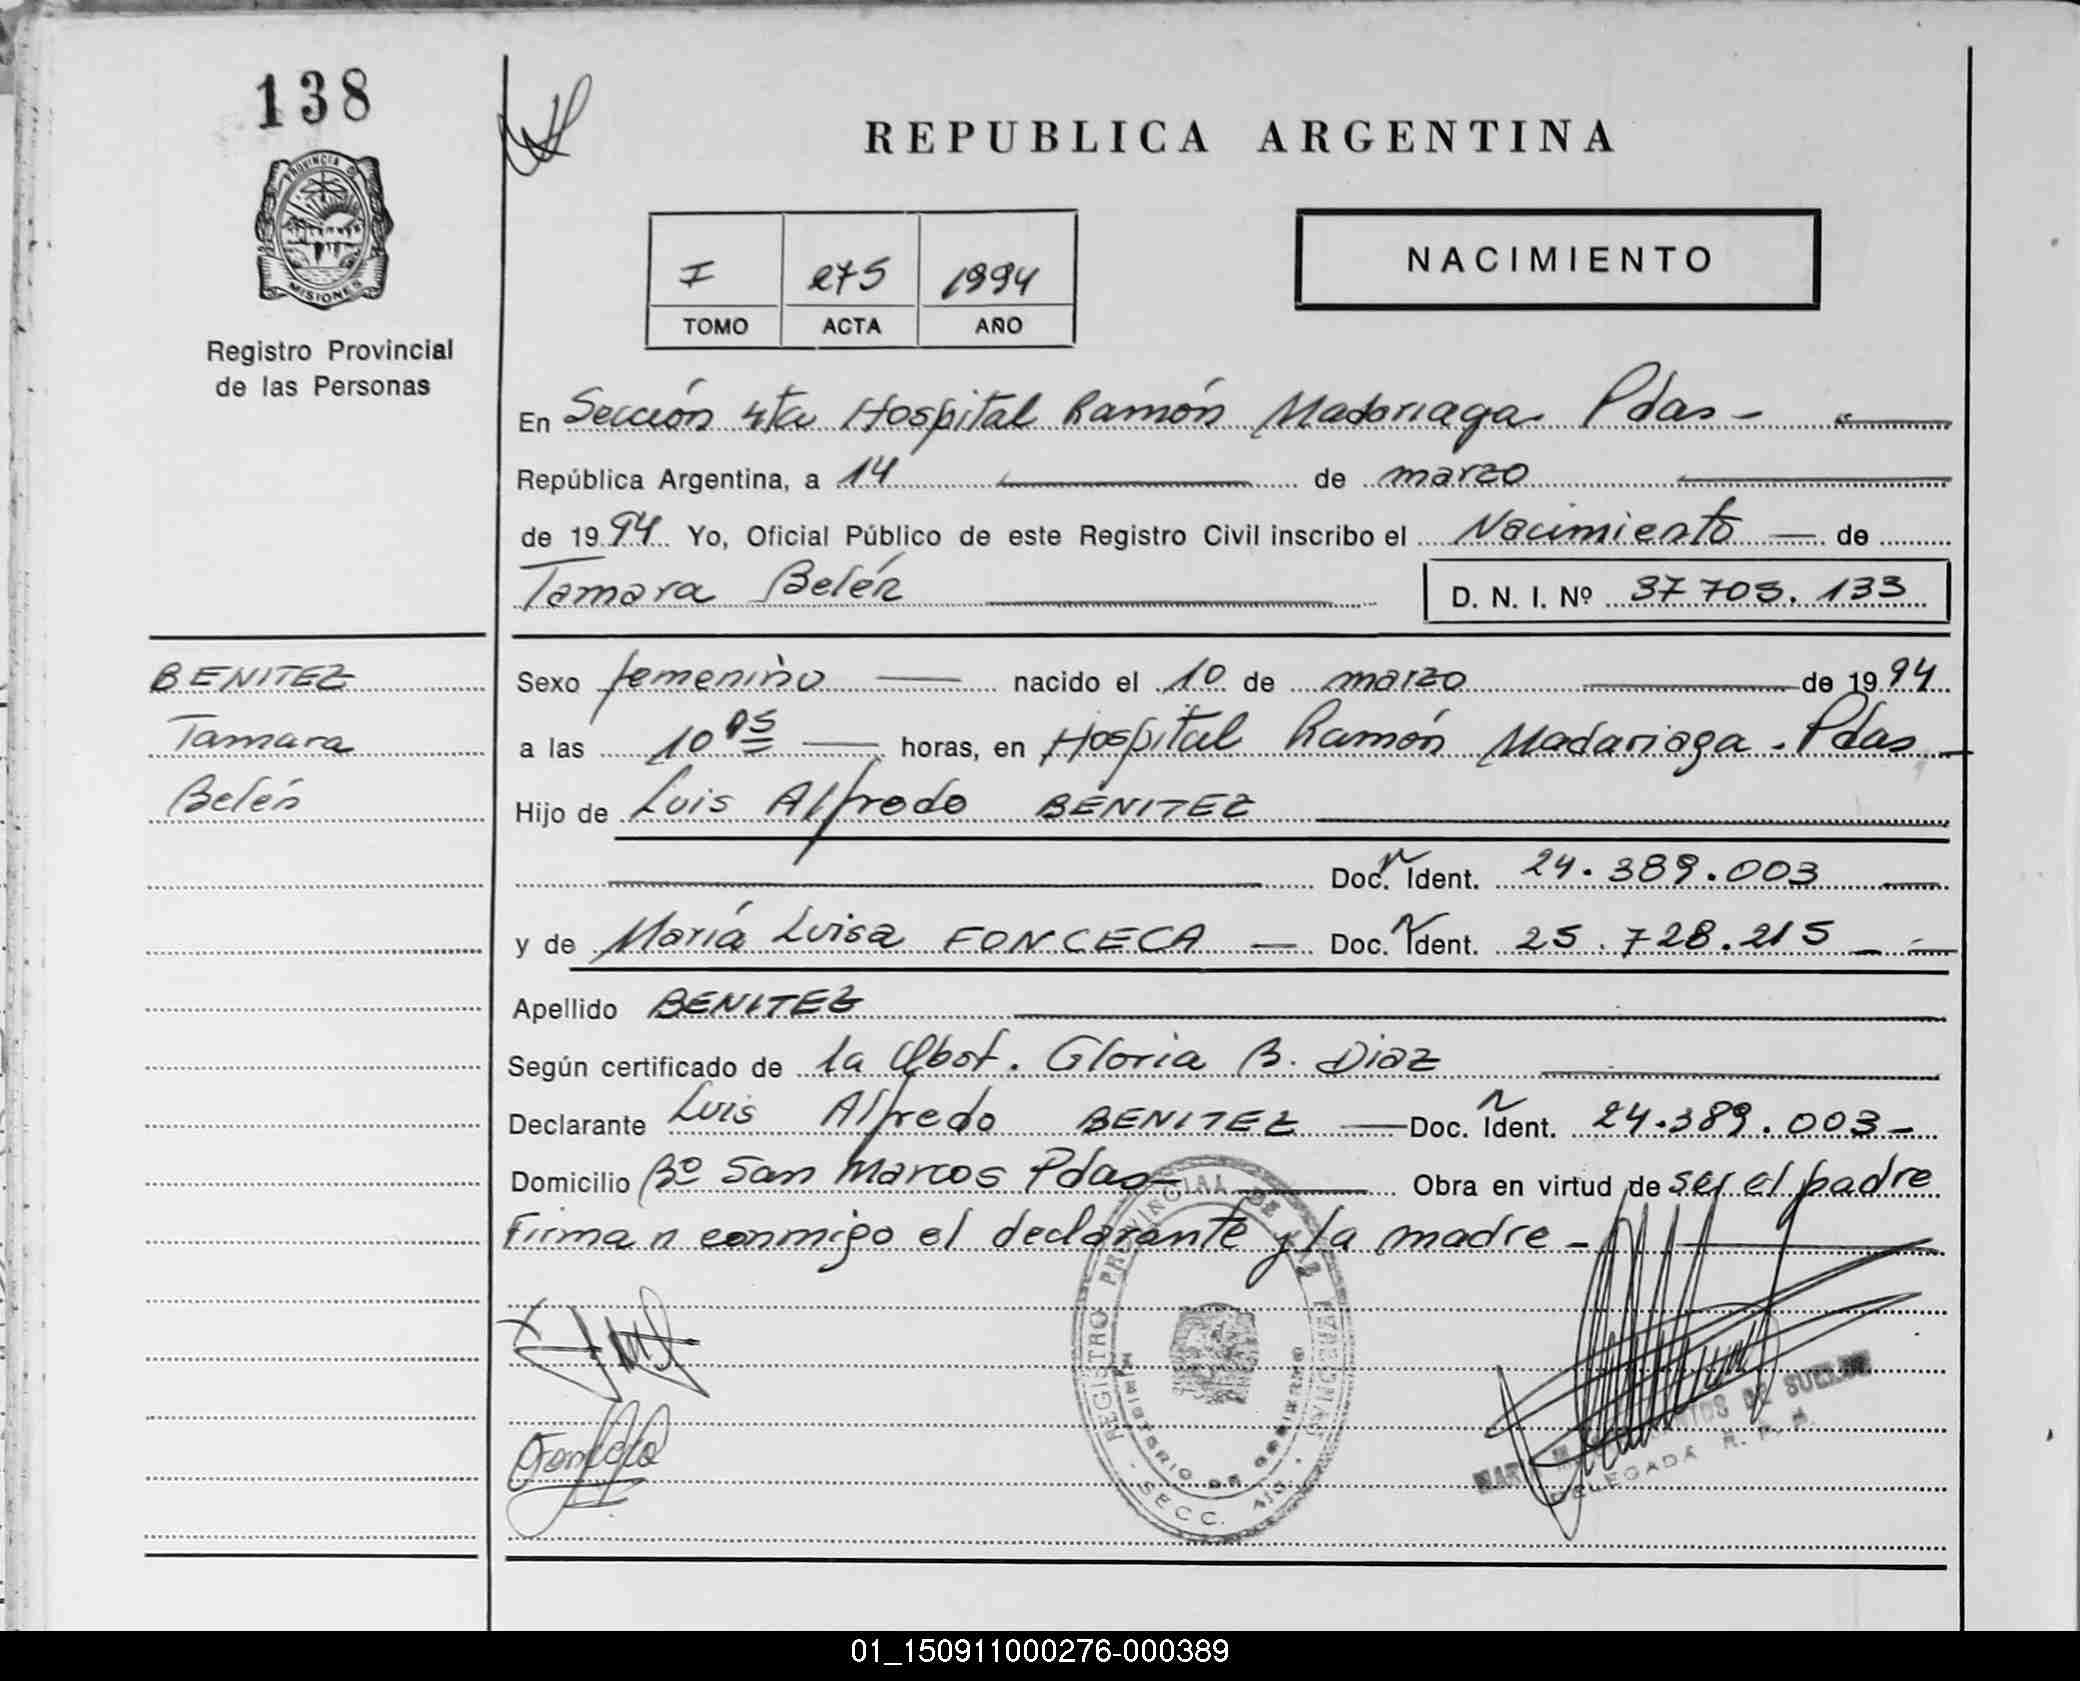 138
REPUBLICA ARGENTINA
PROVINCIA DE
MISIONES
Registro Provincial
de las Personas
I 275 1994
TOMO ACTA AÑO
NACIMIENTO
En Sección 4ta Hospital Ramón Madariaga. Pdas -
República Argentina, a 14 de marzo
de 1994 Yo, Oficial Público de este Registro Civil inscribo el Nacimiento de
Tamara Belén D. N. I. Nº 37 703. 133
BENITEZ
Tamara
Belén
Sexo femenino nacido el 10 de marzo de 1994
a las 10 horas, en Hospital Ramón Madariaga. Pdas
Hijo de Luis Alfredo BENITEZ
Doc. Ident. 24.389.003
y de María Luisa FONCECA Doc. Ident. 25.728.215
Apellido BENITEZ
Según certificado de la Obst. Gloria B. Diaz
Declarante Luis Alfredo BENITEZ Doc. Ident. 24.389.003
Domicilio Bº San Marcos Pdas Obra en virtud de ser el padre
Firman conmigo el declarante y la madre -
REGISTRO PROVINCIAL DE LAS PERSONAS
MINISTERIO DE GOBIERNO
SECC.
DE SUELDO
DELEGADA R. P. P.
01_150911000276-000389